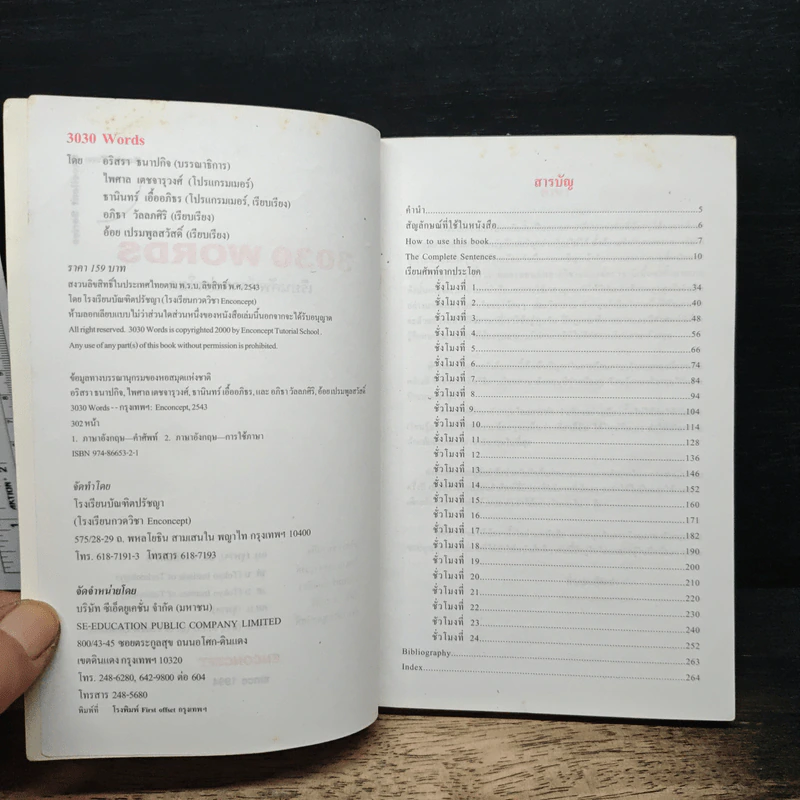 3030 Words
โดย อริสรา ธนาปกิจ (บรรณาธิการ)
ไพศาล เตชจารุวงศ์ (โปรแกรมเมอร์)
ธานินทร์ เอื้ออภิธร (โปรแกรมเมอร์, เรียบเรียง)
อภิธา วัลลภศิริ (เรียบเรียง)
อ้อย เปรมพูลสวัสดิ์ (เรียบเรียง)
ราคา 159 บาท
สงวนลิขสิทธิ์ในประเทศไทยตาม พ.ร.บ. ลิขสิทธิ์ พ.ศ. 2543
โดย โรงเรียนบัณฑิตปรัชญา (โรงเรียนกวดวิชา Enconcept)
ห้ามลอกเลียนแบบไม่ว่าส่วนใดส่วนหนึ่งของหนังสือเล่มนี้นอกจากจะได้รับอนุญาต
All right reserved. 3030 Words is copyrighted 2000 by Enconcept Tutorial School.
Any use of any part(s) of this book without permission is prohibited.
ข้อมูลทางบรรณานุกรมของหอสมุดแห่งชาติ
อริสรา ธนาปกิจ, ไพศาล เตชจารุวงศ์, ธานินทร์ เอื้ออภิธร, และ อภิธา วัลลภศิริ, อ้อย เปรมพูลสวัสดิ์
3030 Words -- กรุงเทพฯ: Enconcept, 2543
302 หน้า
1. ภาษาอังกฤษ—คำศัพท์ 2. ภาษาอังกฤษ—การใช้ภาษา
ISBN 974-86653-2-1
จัดทำโดย
โรงเรียนบัณฑิตปรัชญา
(โรงเรียนกวดวิชา Enconcept)
575/28-29 ถ. พหลโยธิน สามเสนใน พญาไท กรุงเทพฯ 10400
โทร. 618-7191-3 โทรสาร 618-7193
จัดจำหน่ายโดย
บริษัท ซีเอ็ดยูเคชั่น จำกัด (มหาชน)
SE-EDUCATION PUBLIC COMPANY LIMITED
800/43-45 ซอยตระกูลสุข ถนนอโศก-ดินแดง
เขตดินแดง กรุงเทพฯ 10320
โทร. 248-6280, 642-9800 ต่อ 604
โทรสาร 248-5680
พิมพ์ที่ โรงพิมพ์ First offset กรุงเทพฯ
สารบัญ
คำนำ 5
สัญลักษณ์ที่ใช้ในหนังสือ 6
How to use this book 7
The Complete Sentences 10
เรียนศัพท์จากประโยค
ชั่วโมงที่ 1 34
ชั่วโมงที่ 2 40
ชั่วโมงที่ 3 48
ชั่วโมงที่ 4 56
ชั่วโมงที่ 5 66
ชั่วโมงที่ 6 74
ชั่วโมงที่ 7 84
ชั่วโมงที่ 8 94
ชั่วโมงที่ 9 104
ชั่วโมงที่ 10 114
ชั่วโมงที่ 11 128
ชั่วโมงที่ 12 136
ชั่วโมงที่ 13 146
ชั่วโมงที่ 14 152
ชั่วโมงที่ 15 160
ชั่วโมงที่ 16 171
ชั่วโมงที่ 17 182
ชั่วโมงที่ 18 190
ชั่วโมงที่ 19 200
ชั่วโมงที่ 20 210
ชั่วโมงที่ 21 220
ชั่วโมงที่ 22 230
ชั่วโมงที่ 23 240
ชั่วโมงที่ 24 252
Bibliography 263
Index 264